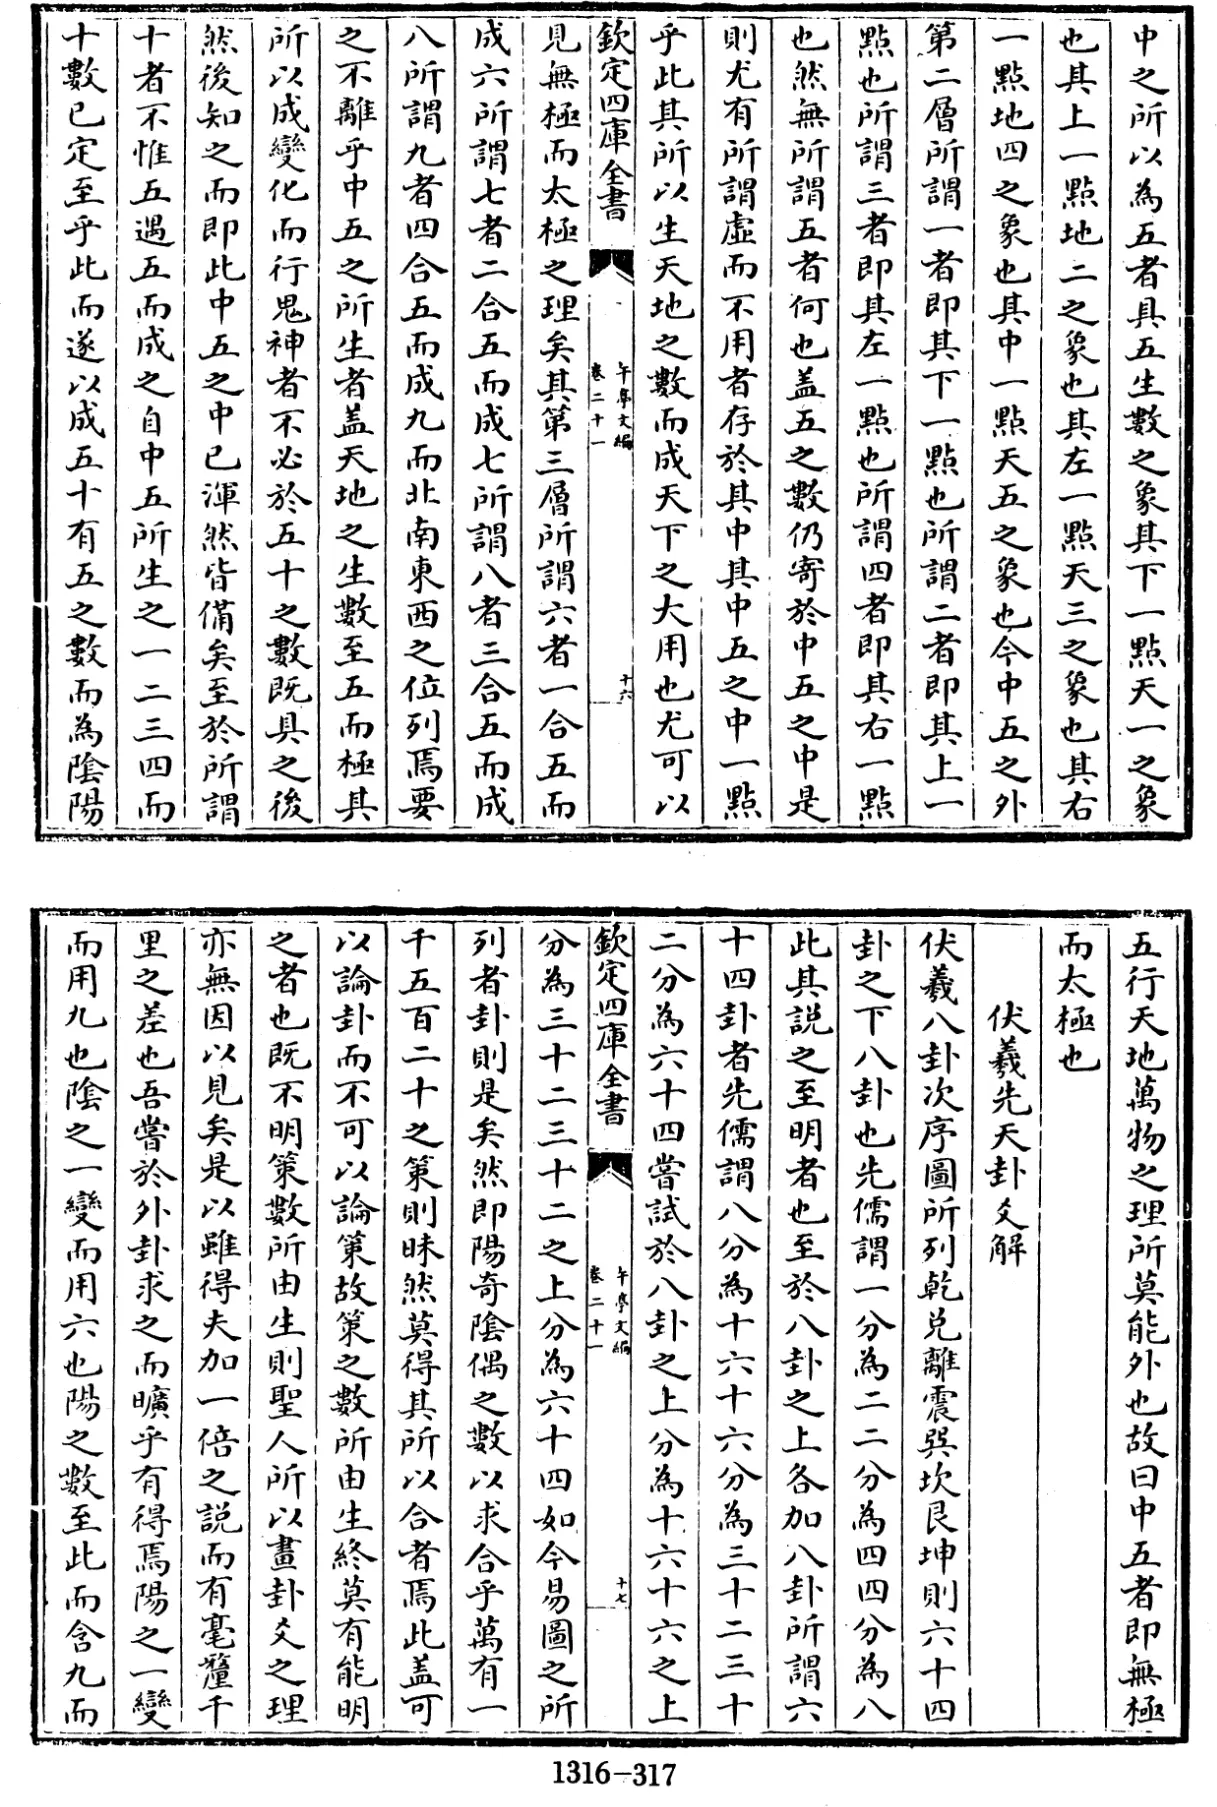 中之所以為五者具五生數之象其下一點天一之象
也其上一點地二之象也其左一點天三之象也其右
一點地四之象也其中一點天五之象也今中五之外
第二層所謂一者即其下一點也所謂二者即其上一
點也所謂三者即其左一點也所謂四者即其右一點
也然無所謂五者何也盖五之數仍寄於中五之中是
則尤有所謂虛而不用者存於其中其中五之中一點
乎此其所以生天地之數而成天下之大用也尤可以
欽定四庫全書
午亭文編
卷二十一
十六
見無極而太極之理矣其第三層所謂六者一合五而
成六所謂七者二合五而成七所謂八者三合五而成
八所謂九者四合五而成九而北南東西之位列焉要
之不離乎中五之所生者盖天地之生數至五而極其
所以成變化而行鬼神者不必於五十之數既具之後
然後知之而即此中五之中已渾然皆備矣至於所謂
十者不惟五遇五而成之自中五所生之一二三四而
十數已定至乎此而遂以成五十有五之數而為陰陽
五行天地萬物之理所莫能外也故曰中五者即無極
而太極也
伏羲先天卦爻解
伏羲八卦次序圖所列乾兌離震巽坎艮坤則六十四
卦之下八卦也先儒謂一分為二二分為四四分為八
此其說之至明者也至於八卦之上各加八卦所謂六
十四卦者先儒謂八分為十六十六分為三十二三十
二分為六十四嘗試於八卦之上分為十六十六之上
欽定四庫全書
午亭文編
卷二十一
十七
分為三十二三十二之上分為六十四如今易圖之所
列者卦則是矣然即陽奇陰偶之數以求合乎萬有一
千五百二十之策則昧然莫得其所以合者焉此盖可
以論卦而不可以論策故策之數所由生終莫有能明
之者也既不明策數所由生則聖人所以畫卦爻之理
亦無因以見矣是以雖得夫加一倍之說而有毫釐千
里之差也吾嘗於外卦求之而曠乎有得焉陽之一變
而用九也陰之一變而用六也陽之數至此而含九而
1316-317